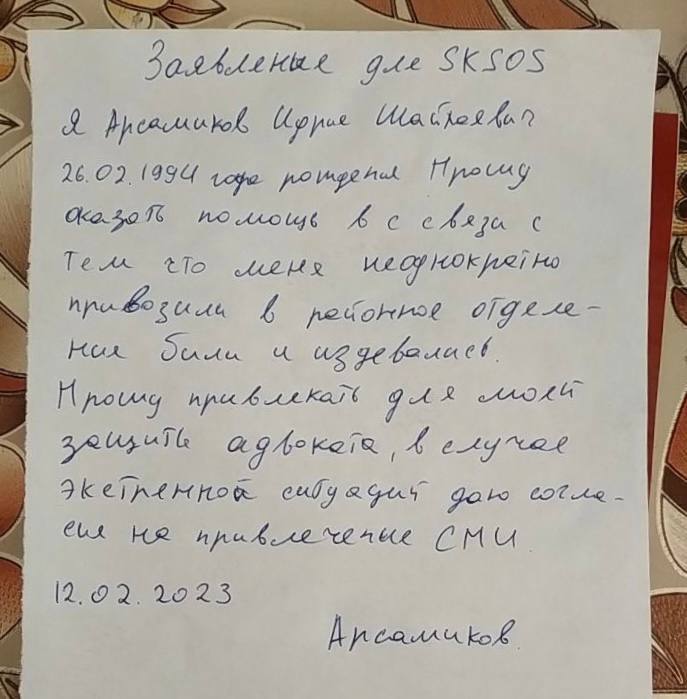 Заявление для SKSOS
Я Арсамиков Идрис Шайхаевич
26.02.1994 года рождения Прошу
оказать помощь в с связи с
тем что меня неоднократно
привозили в районное отделе-
ние били и издевались.
Прошу привлекать для моей
защиты адвоката, в случае
экстренной ситуаций даю согла-
сия на привлечение СМИ
12.02.2023
Арсамиков